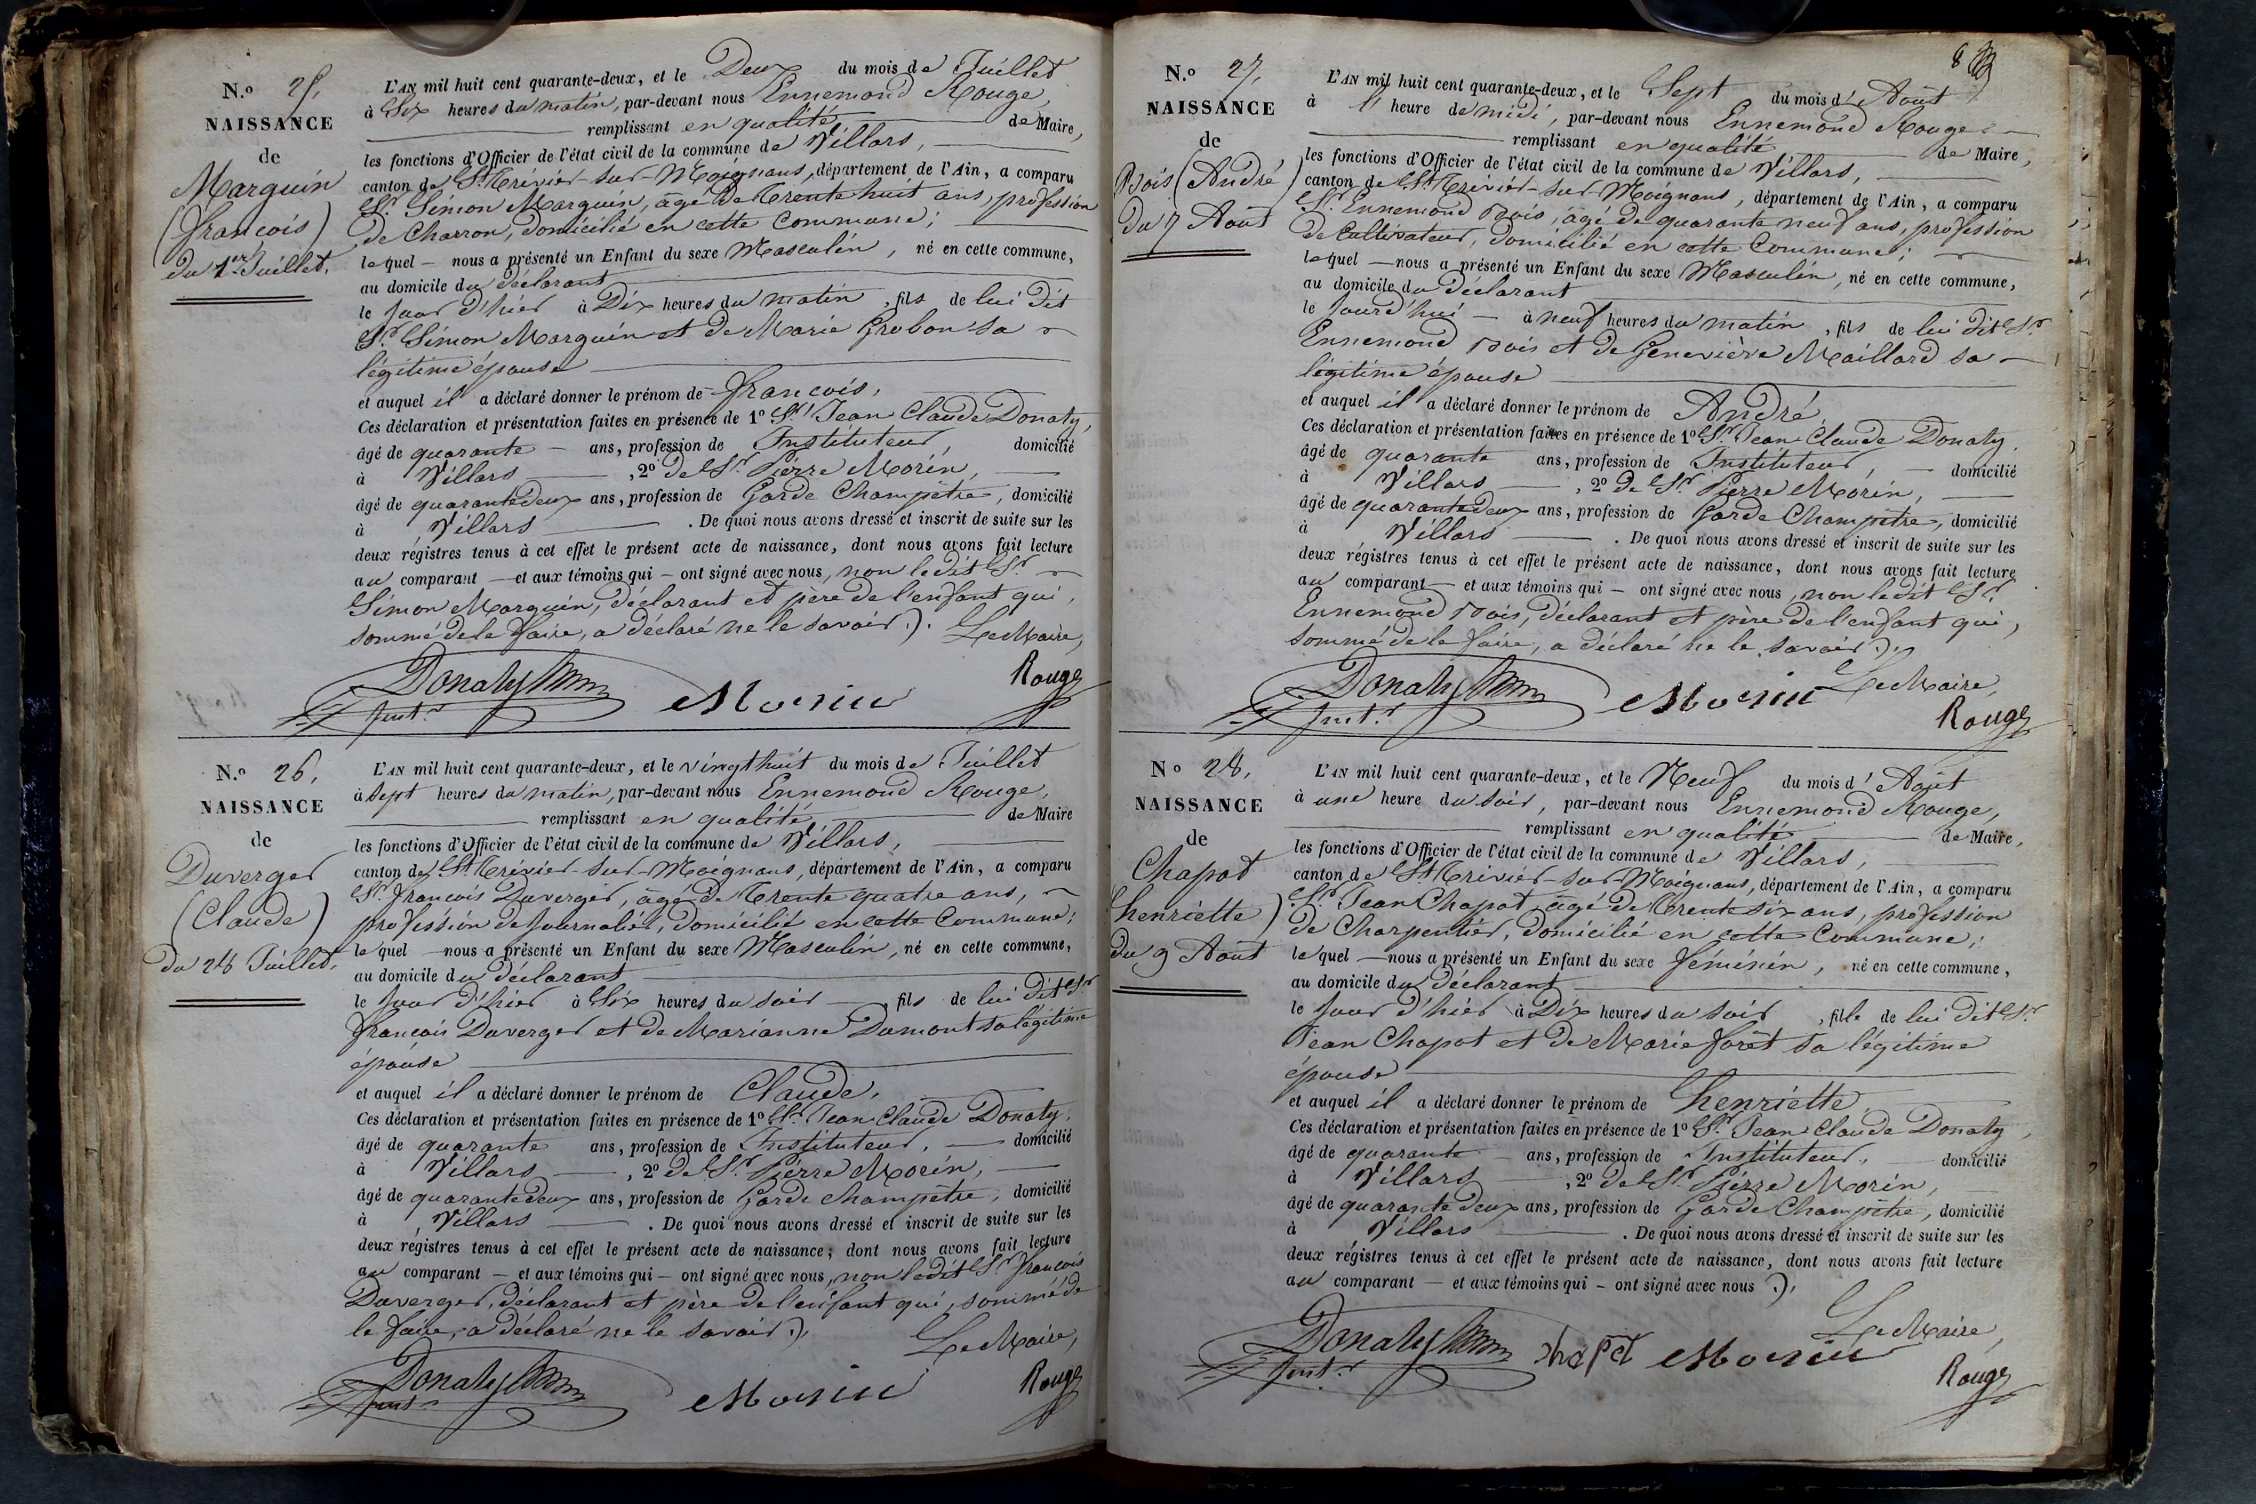 N.º 25.
NAISSANCE
de
Marguin
(françois)
du 1er Juillet.
L'AN mil huit cent quarante-deux, et le Deux du mois de Juillet
à Six heures du matin, par-devant nous Ennemond Rouge,
remplissant en qualité de Maire,
les fonctions d'Officier de l'état civil de la commune de Villars,
canton de St Trivier-sur-Moignans, département de l'Ain, a comparu
Sr. Simon Marguin, âgé de Trente huit ans, profession
de Charron, domicilié en cette Commune;
lequel — nous a présenté un Enfant du sexe Masculin, né en cette commune,
au domicile du déclarant
le jour d'hier à Dix heures du matin, fils de lui dit
Sr. Simon Marguin et de Marie Grobon sa
légitime épouse
et auquel il a déclaré donner le prénom de françois,
Ces déclaration et présentation faites en présence de 1º Sr Jean Claude Donaty,
âgé de quarante — ans, profession de Instituteur, domicilié
à Villars, 2º de Sr. Pierre Morin,
âgé de quarantedeux ans, profession de Garde Champêtre, domicilié
à Villars. De quoi nous avons dressé et inscrit de suite sur les
deux régistres tenus à cet effet le présent acte de naissance, dont nous avons fait lecture
au comparant — et aux témoins qui — ont signé avec nous, non ledit Sr.
Simon Marguin, déclarant et père de l'enfant qui,
sommé de le faire, a déclaré ne le savoir.).
Le Maire,
Donaty
Inst.r
Morin
Rouge
N.º 26.
NAISSANCE
de
Duverger
(Claude)
du 28 Juillet.
L'AN mil huit cent quarante-deux, et le vingthuit du mois de Juillet
à Sept heures du matin, par-devant nous Ennemond Rouge,
remplissant en qualité de Maire
les fonctions d'Officier de l'état civil de la commune de Villars,
canton de St Trivier-sur-Moignans, département de l'Ain, a comparu
Sr. françois Duverger, âgé de Trente quatre ans,
profession de Journalier, domicilié en cette Commune;
lequel — nous a présenté un Enfant du sexe Masculin, né en cette commune,
au domicile du déclarant
le jour d'hier à Six heures du soir — fils de lui dit Sr
françois Duverger et de Marianne Dumont sa légitime
épouse
et auquel il a déclaré donner le prénom de Claude,
Ces déclaration et présentation faites en présence de 1º Sr. Jean Claude Donaty,
âgé de quarante ans, profession de Instituteur, — domicilié
à Villars, 2º de Sr. Pierre Morin,
âgé de quarantedeux ans, profession de Garde champêtre, domicilié
à Villars. De quoi nous avons dressé et inscrit de suite sur les
deux régistres tenus à cet effet le présent acte de naissance; dont nous avons fait lecture
au comparant — et aux témoins qui — ont signé avec nous, non ledit Sr françois
Duverger, déclarant et père de l'enfant qui, sommé de
le faire, a déclaré ne le savoir.).
Le Maire,
Donaty
Inst.r
Morin
Rouge
N.º 27.
NAISSANCE
de
Bois (André)
du 7 Août
L'AN mil huit cent quarante-deux, et le Sept du mois d'Août
à l'heure de midi, par-devant nous Ennemond Rouge
remplissant en qualité de Maire,
les fonctions d'Officier de l'état civil de la commune de Villars,
canton de St Trivier-sur-Moignans, département de l'Ain, a comparu
Sr. Ennemond Bois, âgé de quarante neuf ans, profession
de Cultivateur, domicilié en cette Commune;
lequel — nous a présenté un Enfant du sexe Masculin, né en cette commune,
au domicile du déclarant
le jourd'hui — à neuf heures du matin, fils de lui dit Sr.
Ennemond Bois et de Geneviève Maillard sa
légitime épouse
et auquel il a déclaré donner le prénom de André
Ces déclaration et présentation faites en présence de 1º Sr. Jean Claude Donaty,
âgé de quarante ans, profession de Instituteur, — domicilié
à Villars, 2º de Sr Pierre Morin,
âgé de quarantedeux ans, profession de Garde Champêtre, domicilié
à Villars. De quoi nous avons dressé et inscrit de suite sur les
deux régistres tenus à cet effet le présent acte de naissance, dont nous avons fait lecture
au comparant — et aux témoins qui — ont signé avec nous, non ledit Sr.
Ennemond Bois, déclarant et père de l'enfant qui,
sommé de le faire, a déclaré ne le savoir.).
Le Maire,
Donaty
Inst.r
Morin
Rouge
Nº 28.
NAISSANCE
de
Chapot
(henriette)
du 9 Août
L'AN mil huit cent quarante-deux, et le Neuf du mois d'Août
à une heure du soir, par-devant nous Ennemond Rouge,
remplissant en qualité de Maire,
les fonctions d'Officier de l'état civil de la commune de Villars,
canton de St Trivier-sur-Moignans, département de l'Ain, a comparu
Sr. Jean Chapot, âgé de Trente six ans, profession
de Charpentier, domicilié en cette Commune;
lequel — nous a présenté un Enfant du sexe féminin, né en cette commune,
au domicile du déclarant
le jour d'hier à Dix heures du soir, fille de lui dit Sr.
Jean Chapot et de Marie forêt sa légitime
épouse
et auquel il a déclaré donner le prénom de henriette
Ces déclaration et présentation faites en présence de 1º Sr. Jean Claude Donaty,
âgé de quarante — ans, profession de Instituteur, — domicilié
à Villars, 2º de Sr Pierre Morin,
âgé de quarante deux ans, profession de Garde Champêtre, domicilié
à Villars. De quoi nous avons dressé et inscrit de suite sur les
deux régistres tenus à cet effet le présent acte de naissance, dont nous avons fait lecture
au comparant — et aux témoins qui — ont signé avec nous.).
Le Maire,
Donaty
Inst.r
chapot
Morin
Rouge